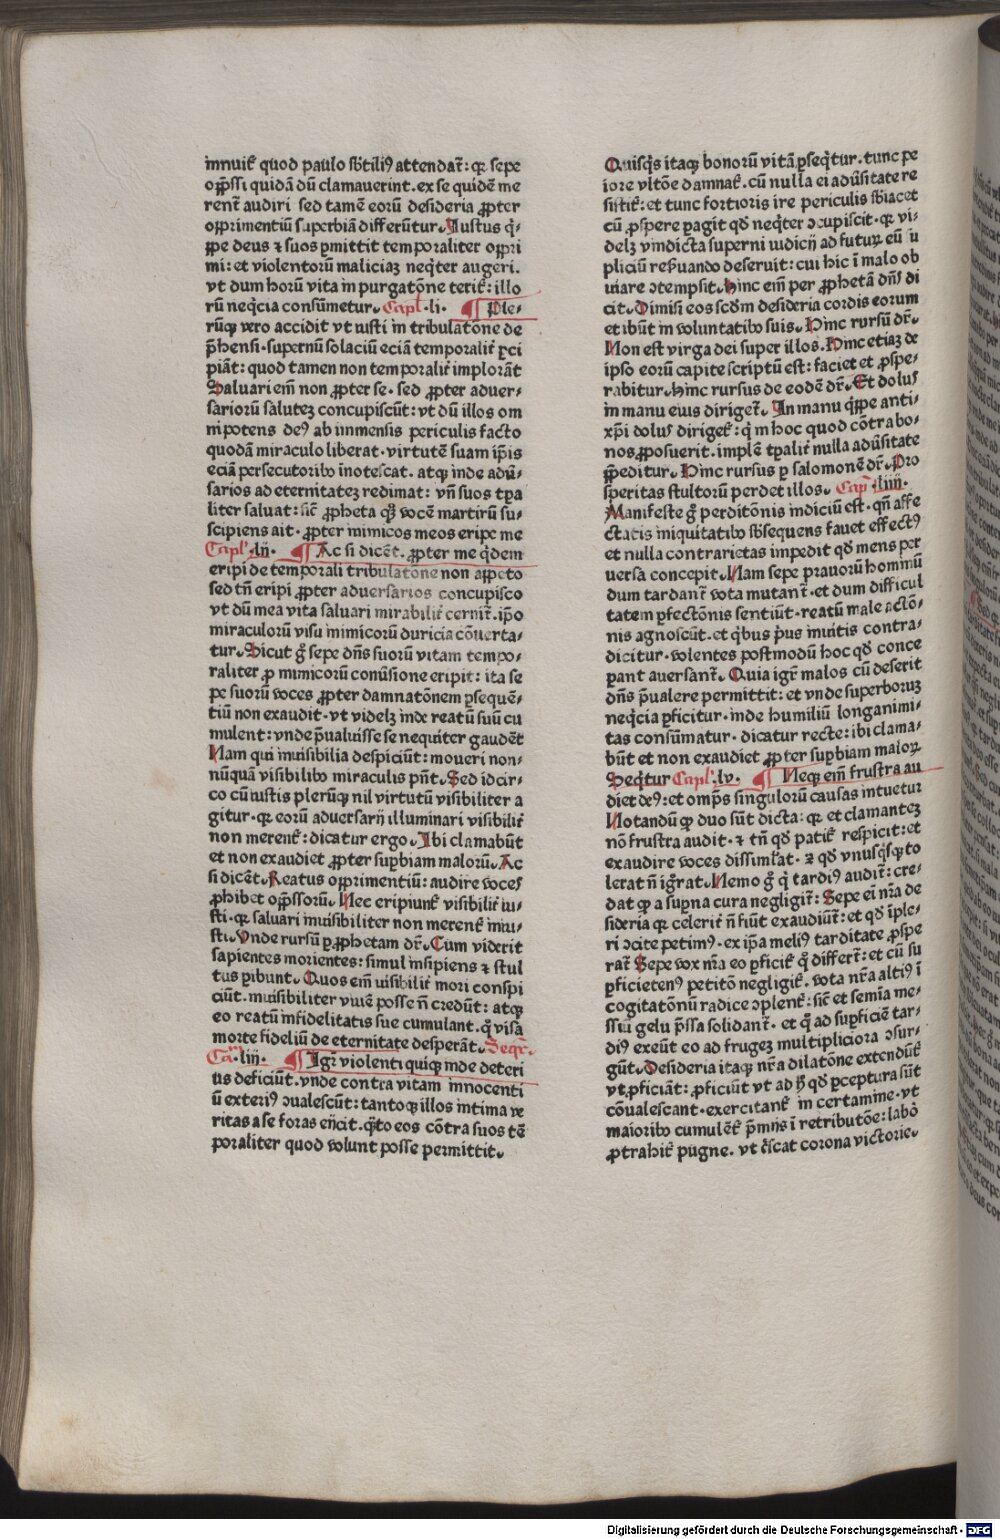 innuit̄ quod paulo sb̄tiliꝰ attendat̄: qꝛ sepe
oꝓpssi quidā dū clamauerint. ex se quidē me
rent̄ audiri sed tamē eorū desideria ꝓpter
opprimentiū supbiā differūtur. Iustus q̇-
ppe deus ⁊ suos ꝑmittit temporaliter oppri
mi: et violentorū maliciaꝫ neqꝫter augeri.
vt dum horū vita in purgatōne terit̄: illo
rū neqcia consūmetur. Capl̓.li. ¶ Ple-
rūqꝫ vero accidit vt iusti in tribulatōne de
p̄hensi. supernū solaciū eciā temporalit̓ ꝑci
piāt: quod tamen non temporalit̓ implorāt
Saluari em̄ non ꝓpter se. sed ꝓpter aduer-
sariorū saluteꝫ concupiscūt: vt dū illos om
nipotens deꝰ ab immensis periculis facto
quodā miraculo liberat. virtutē suam ip̄is
eciā persecutoribꝰ inotescat. atqꝫ inde adū-
sarios ad eternitateꝫ redimat: vn̄ suos tp̄a
liter saluat: sic̄ ꝓpheta qͣsi vocē martirū su-
scipiens ait. ꝓpter inimicos meos eripe me
Capl̓.lij. ¶ Ac si dicēt. ꝓpter me q̇dem
eripi de temporali tribulatōne non appeto
sed tn̄ eripi ꝓpter aduersarios concupisco
vt dū mea vita saluari mirabilit̓ cernit̄. ip̄o
miraculorū visu inimicorū duricia cōuerta-
tur. Sicut gͦ sepe dn̄s suorū vitam tempo-
raliter ꝓ inimicorū conūsione eripit: ita se
pe suorū voces ꝓpter damnatōnem ꝑsequē-
tiū non exaudit. vt videlꝫ inde reatū suū cu
mulent: vnde p̄ualuisse se nequiter gaudēt
Nam qui inuisibilia despiciūt: moueri non-
nūquā visibilibꝰ miraculis pn̄t. Sed idcir-
co cū iustis plerūqꝫ nil virtutū visibiliter a
gitur. qꝛ eorū aduersarij illuminari visibilit̓
non merent̄: dicatur ergo. Ibi clamabūt
et non exaudiet ꝓpter supbiam malorū. Ac
si dicēt. Reatus opprimentiū: audire voces
ꝓhibet oppssorū. Nec eripiunt̄ visibilit̓ iu-
sti. qꝛ saluari inuisibiliter non merent̄ iniu-
sti. Vnde rursū ꝑ ꝓphetam dr̄. Cum viderit
sapientes morientes: simul insipiens ⁊ stul
tus ꝑibunt. Quos em̄ visibilit̓ mori conspi
ciūt. inuisibiliter viuē posse n̄ credūt: atqꝫ
eo reatū infidelitatis sue cumulant. qͦ visa
morte fideliū de eternitate desperāt. Seqr̄.
Ca.liij. ¶ Igr̄ violenti quiqꝫ inde deteri
us deficiūt. vnde contra vitam innocenti
ū exteriꝰ ꝯualescūt: tantoqꝫ illos intima ve
ritas a se foras eijcit. qͣto eos cōtra suos tē
poraliter quod volunt posse permittit.
Quisqs̓ itaqꝫ bonorū vitā ꝑseq̇tur. tunc pe
iore vltōe damnat̄. cū nulla ei adūsitate re
sistit̄: et tunc fortioris ire periculis sb̄iacet
cū ꝓspere ꝑagit qd̓ neq̇ter ꝯcupiscit. qꝛ vi-
delꝫ vindicta superni iudicij ad futuꝝ eū su
pliciū reẜuando deseruit: cui hic i malo ob
uiare ꝯtempsit. Hinc em̄ per ꝓphetā dn̄s di
cit. Dimisi eos scd̓m desideria cordis eorum
et ibūt in voluntatibꝰ suis. Hinc rursū dr̄.
Non est virga dei super illos. Hinc etiaꝫ de
ipso eorū capite scriptū est: faciet et ꝓspe-
rabitur. hinc rursus de eodē dr̄. Et dolus
in manu eius diriget̄. In manu q̇ppe anti-
xp̄i dolus diriget̄: q̇ in hoc quod cōtra bo-
nos ꝓposuerit. implē tꝑalit̓ nulla adūsitate
p̄peditur. Hinc rursus ꝑ salomonē dr̄. Pro
speritas stultorū perdet illos. Cap̄.liiij.
Manifeste gͦ perditōnis indiciū est. qn̄ affe
ctatis iniquitatibꝰ sb̄sequens fauet effectꝰ
et nulla contrarietas impedit qd̓ mens per
uersa concepit. Nam sepe prauorū hominū
dum tardant̄ vota mutant̄. et dum difficul
tatem ꝑfectōnis sentiūt. reatū male actō-
nis agnoscūt. et q̇bus pͥus inuitis contra-
dicitur. volentes postmodū hoc qd̓ conce
perant auersant̄. Quia igr̄ malos cū deserit
dn̄s p̄ualere permittit: et vnde superboruꝫ
neq̇cia ꝑficitur. inde humiliū longanimi-
tas consūmatur. dicatur recte: ibi clama-
būt et non exaudiet ꝓpter supbiam maloꝝ
Seq̇tur Capl̓.lv. ¶ Neqꝫ em̄ frustra au
diet deꝰ: et omp̄s singulorū causas intuetur
Notandū qꝫ duo sūt dicta: qꝛ et clamanteꝫ
nō frustra audit. ⁊ tn̄ qd̓ patit̄ respicit: et
exaudire voces dissimlat. ⁊ qd̓ vnusq̇sqꝫ to
lerat n̄ igͦrat. Nemo gͦ q̇ tardiꝰ audit̄: cre-
dat qꝫ a supna cura negligit̄: Sepe ei nr̄a de
sideria qꝛ celerit̓ n̄ fiūt exaudiūt̄: et qd̓ īple-
ri ꝯcite petimꝰ. ex ip̄a meliꝰ tarditate ꝓspe
rat̄ Sepe vox nr̄a eo ꝑficit̄ qͦ differt̄: et cū su
ꝑficietenꝰ petitō negligit̄. vota nr̄a altiꝰ ī
cogitatōnū radice ꝯplent̄: sic̄ et semīa me-
ssiū gelu p̄ssa solidant̄. et qͦ ad supficiē tar-
diꝰ exeūt eo ad frugeꝫ multipliciora ꝯsur-
gūt. Desideria itaqꝫ nr̄a dilatōne extendūt̄
vt ꝓficiāt: ꝓficiūt vt ad hͦ qd̓ ꝑceptura sūt
cōualescant. exercitant̄ in certamine. vt
maioribꝰ cumulēt̄ p̄mijs ī retributōe: labor̓
ꝓtrahit̄ pugne. vt cͥscat corona victorie.
Digitalisierung gefördert durch die Deutsche Forschungsgemeinschaft - DFG